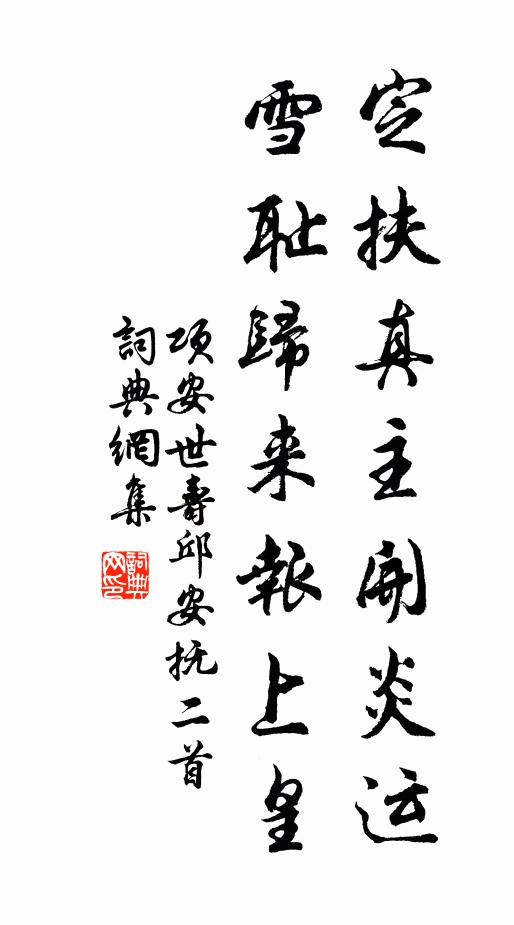 定扶真主開炎运
雪耻歸来報上皇
項安世壽邱安抚二首
詞典網集
詞典网印